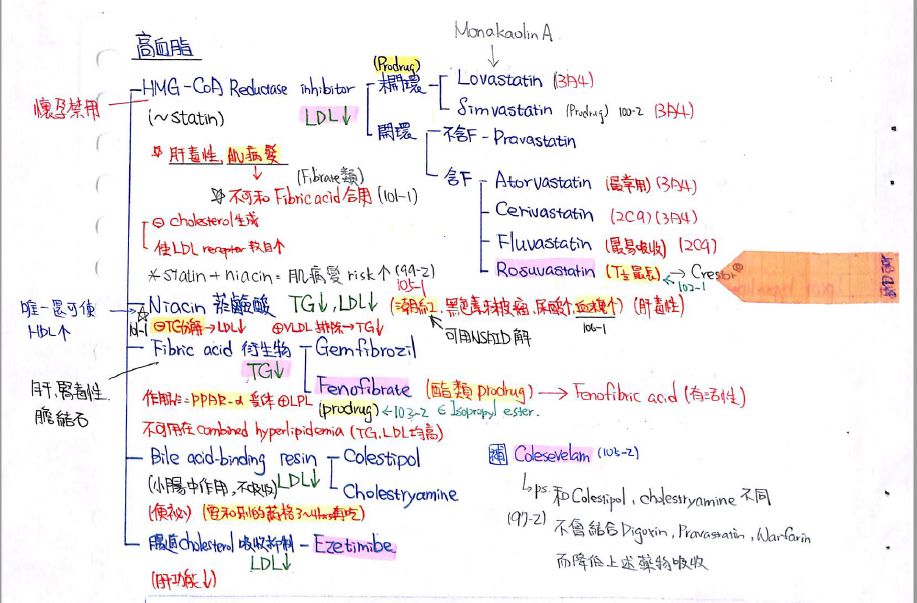 Monakaolin A
高血脂
HMG-CoA Reductase inhibitor (Prodrug) 開環 Lovastatin (3A4)
懷孕禁用
(~statin) LDL↓
Simvastatin (Prodrug) 100-2 (3A4)
開環 不含F - Pravastatin
☆ 肝毒性, 肌病變
(Fibrate類)
☆ 不可和 Fibric acid 合用 (101-1)
含F Atorvastatin (最常用) (3A4)
Cerivastatin (2C9) (3A4)
⊖ cholesterol 生成
Fluvastatin (最易吸收) (2C9)
使 LDL receptor 數目↑
Rosuvastatin (T½最長) → Crestor®
102-1
*statin + niacin = 肌病變 risk↑ (99-2)
105-1
唯一還可使
HDL↑
Niacin 菸鹼酸 TG↓, LDL↓ (潮紅, 黑色棘皮瘤, 尿酸↑, 血糖↑) (肝毒性)
106-1
101-1 ⊖TG分解→LDL↓ ⊕VLDL 排除→TG↓
可用NSAID解
Fibric acid 衍生物 Gemfibrozil
TG↓
肝,腎毒性
膽結石
Fenofibrate (酯類 prodrug) → Fenofibric acid (有活性)
作用於=PPAR-α 受體 ⊕LPL (prodrug) ←103-2 ∈ Isopropyl ester.
不可用在 combined hyperlipidemia (TG, LDL均高)
Bile acid-binding resin Colestipol
(小腸中作用, 不吸收) LDL↓
Cholestryamine
(便祕) (需和別的藥格3~4hrs再吃)
補 Colesevelam (105-2)
ps. 和 Colestipol, cholestryamine 不同
(97-2) 不會結合 Digoxin, Pravastatin, Warfarin
而降低上述藥物吸收
腸道 cholesterol 吸收抑制 - Ezetimibe
LDL↓
(肝功能↓)